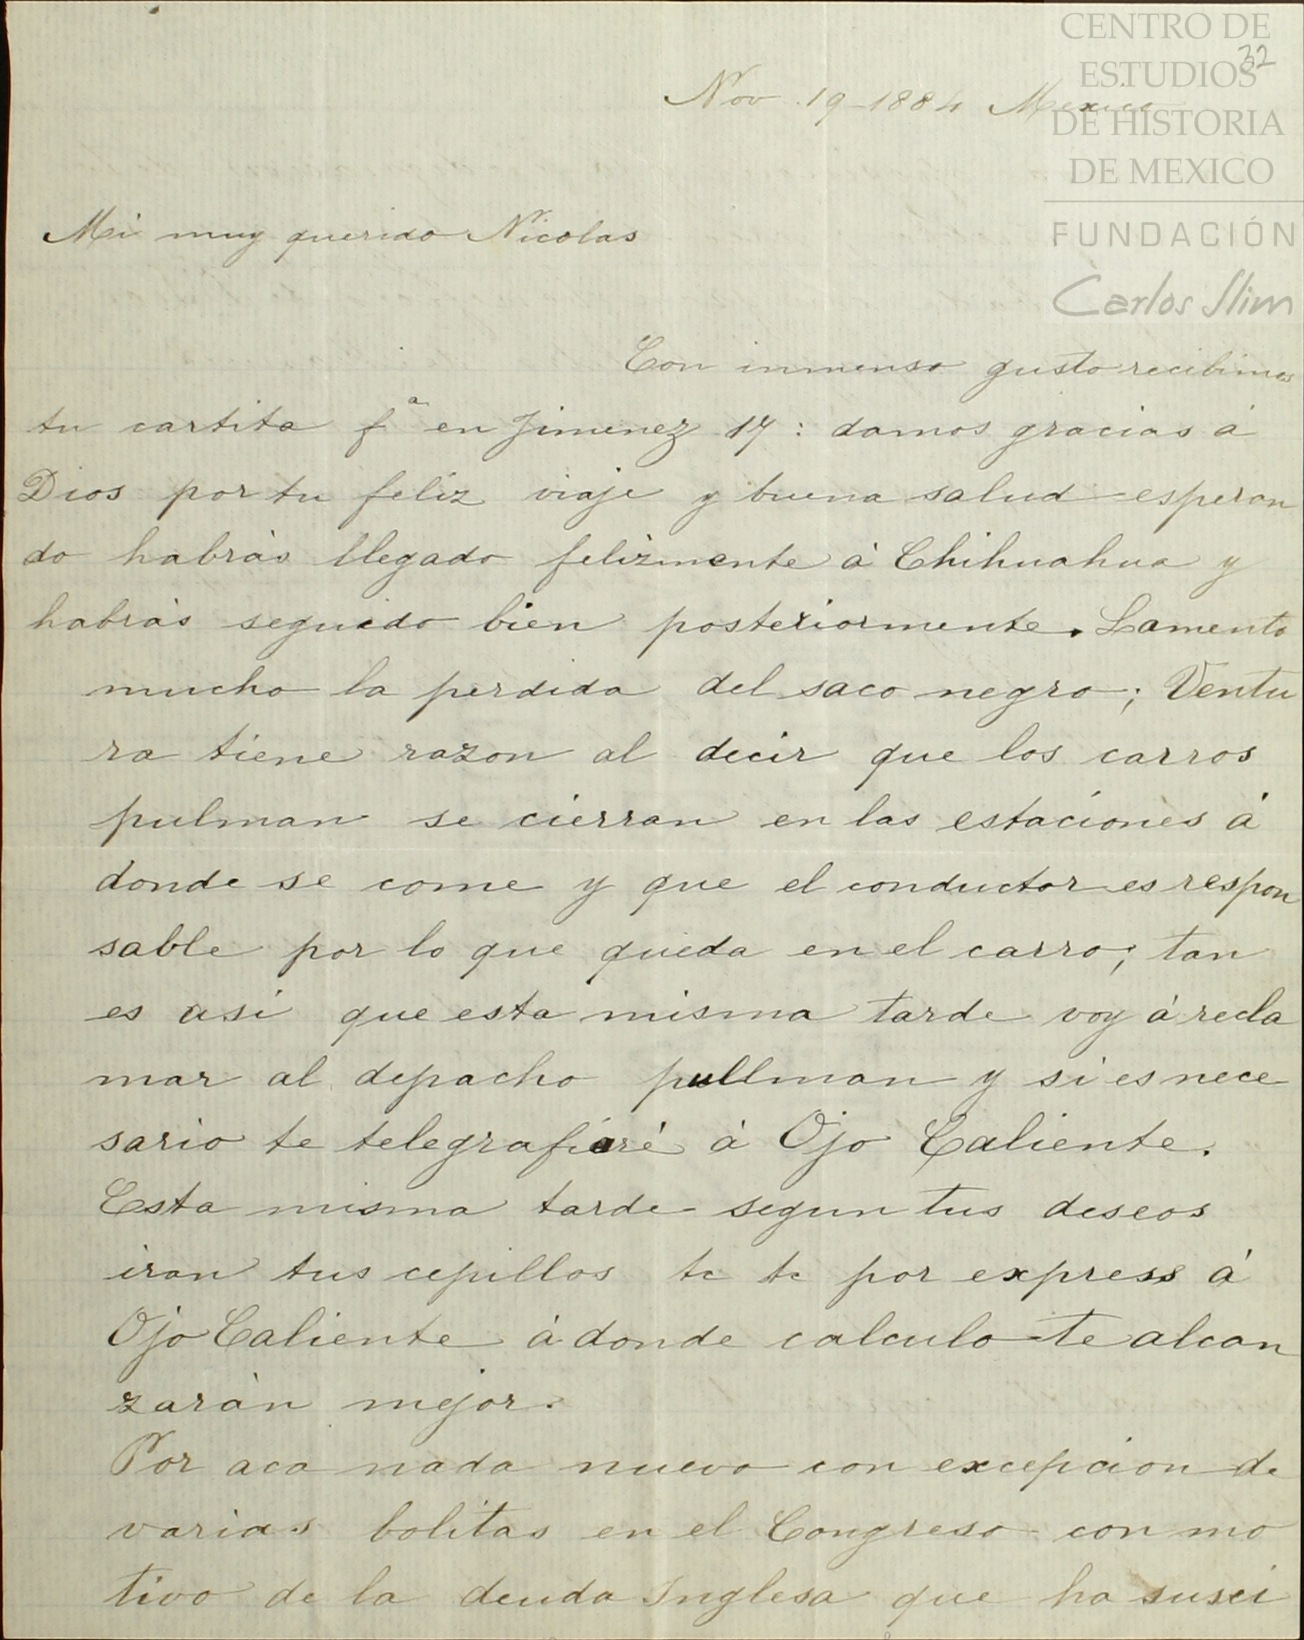 CENTRO DE
ESTUDIOS
DE HISTORIA
DE MEXICO
FUNDACIÓN
Carlos Slim
32
Nov 19-1884 Mexico
Mi muy querido Nicolas
Con inmenso gusto recibimos
tu cartita fª en Jimenez 17: damos gracias á
Dios por tu feliz viaje y buena salud esperan
do habrás llegado felizmente á Chihuahua y
habrás seguido bien posteriormente. Lamento
mucho la perdida del saco negro; Ventu
ra tiene razon al decir que los carros
pulman se cierran en las estaciones á
donde se come y que el conductor es respon
sable por lo que queda en el carro; tan
es asi que esta misma tarde voy á recla
mar al depacho pullman y si es nece
sario te telegrafiaré á Ojo Caliente.
Esta misma tarde segun tus deseos
iran tus cepillos por express á
Ojo Caliente á donde calculo te alcan
zarán mejor.
Por aca nada nuevo con excepcion de
varias bolitas en el Congreso con mo
tivo de la deuda Inglesa que ha susci